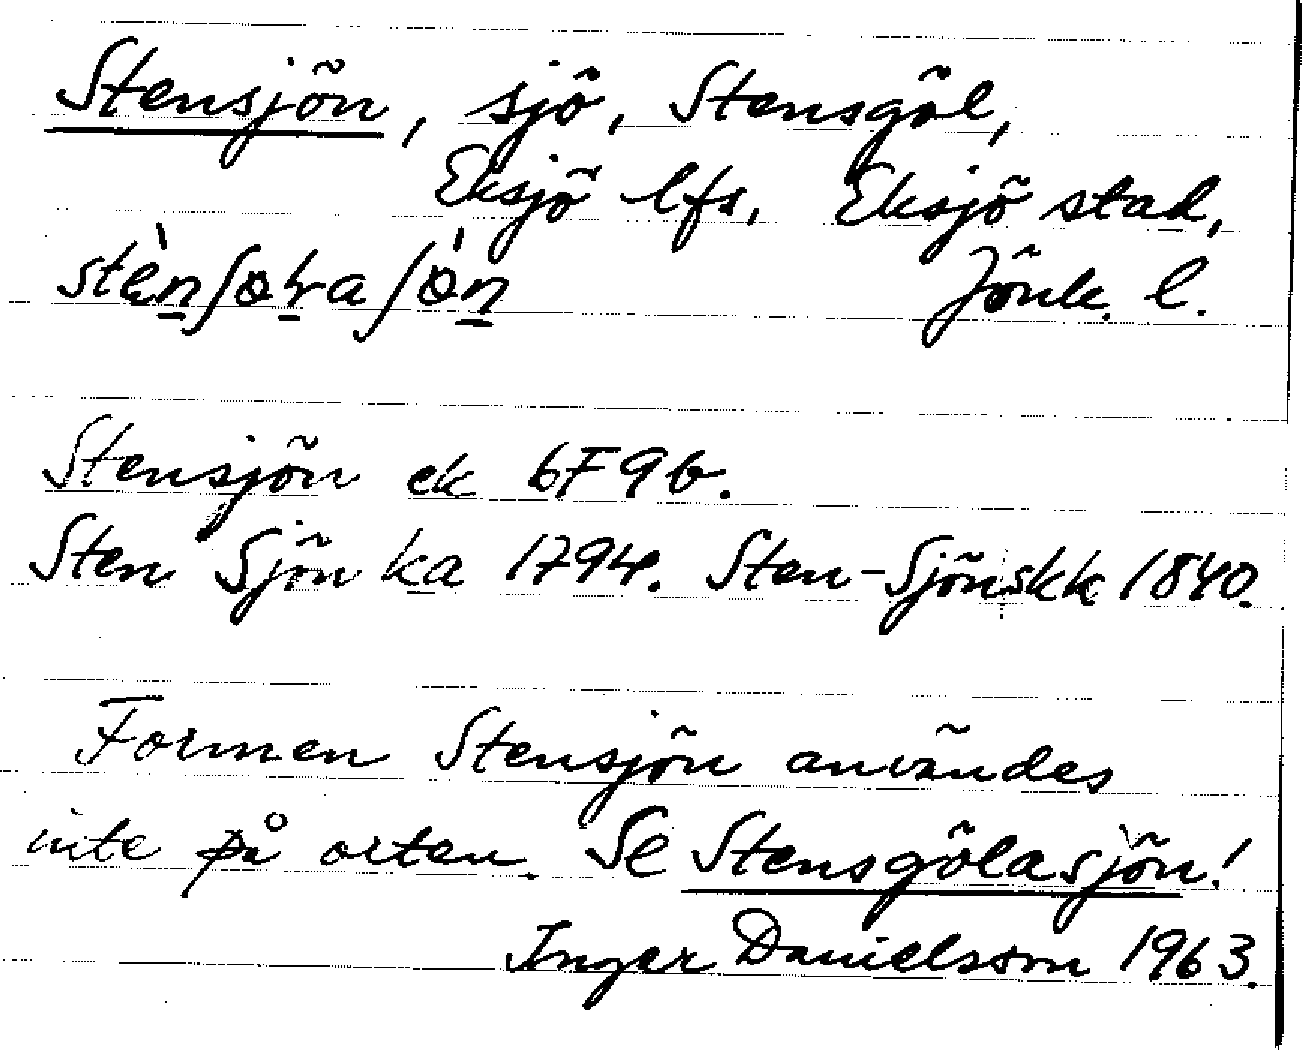 Stensjön, sjö, Stensgöl,
Eksjö lfs, Eksjö stad,
Jönk. l.
Stensjön ek 6F9b.
Sten Sjön ka 1794. Sten-Sjön skk 1840.
Formen Stensjön användes
inte på orten. Se Stensgölasjön!
Ingar Danielsson 1963.